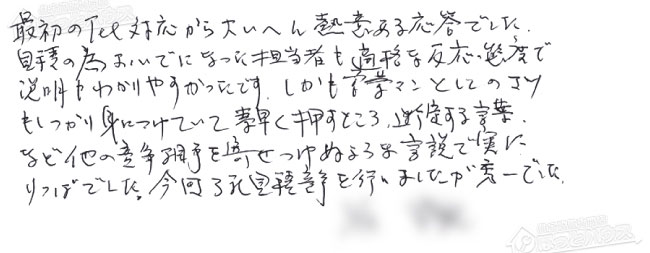 最初のTel対応から大いへん熱意ある応答でした.
見積の為おいでになった担当者も適格な反応、態度で
説明もわかりやすかったです. しかも営業マンとしての
もしっかり身につけていて素早く押すところ、断定する言葉.
など他の競争相手を寄せつけぬような言説で実に
りっぱでした. 今回3社見積競争を行いましたが秀一でした.